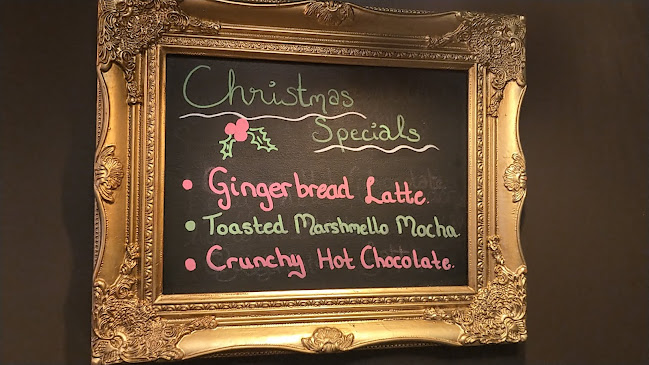 Christmas
Specials
• Gingerbread Latte.
• Toasted Marshmello Mocha
• Crunchy Hot Chocolate.